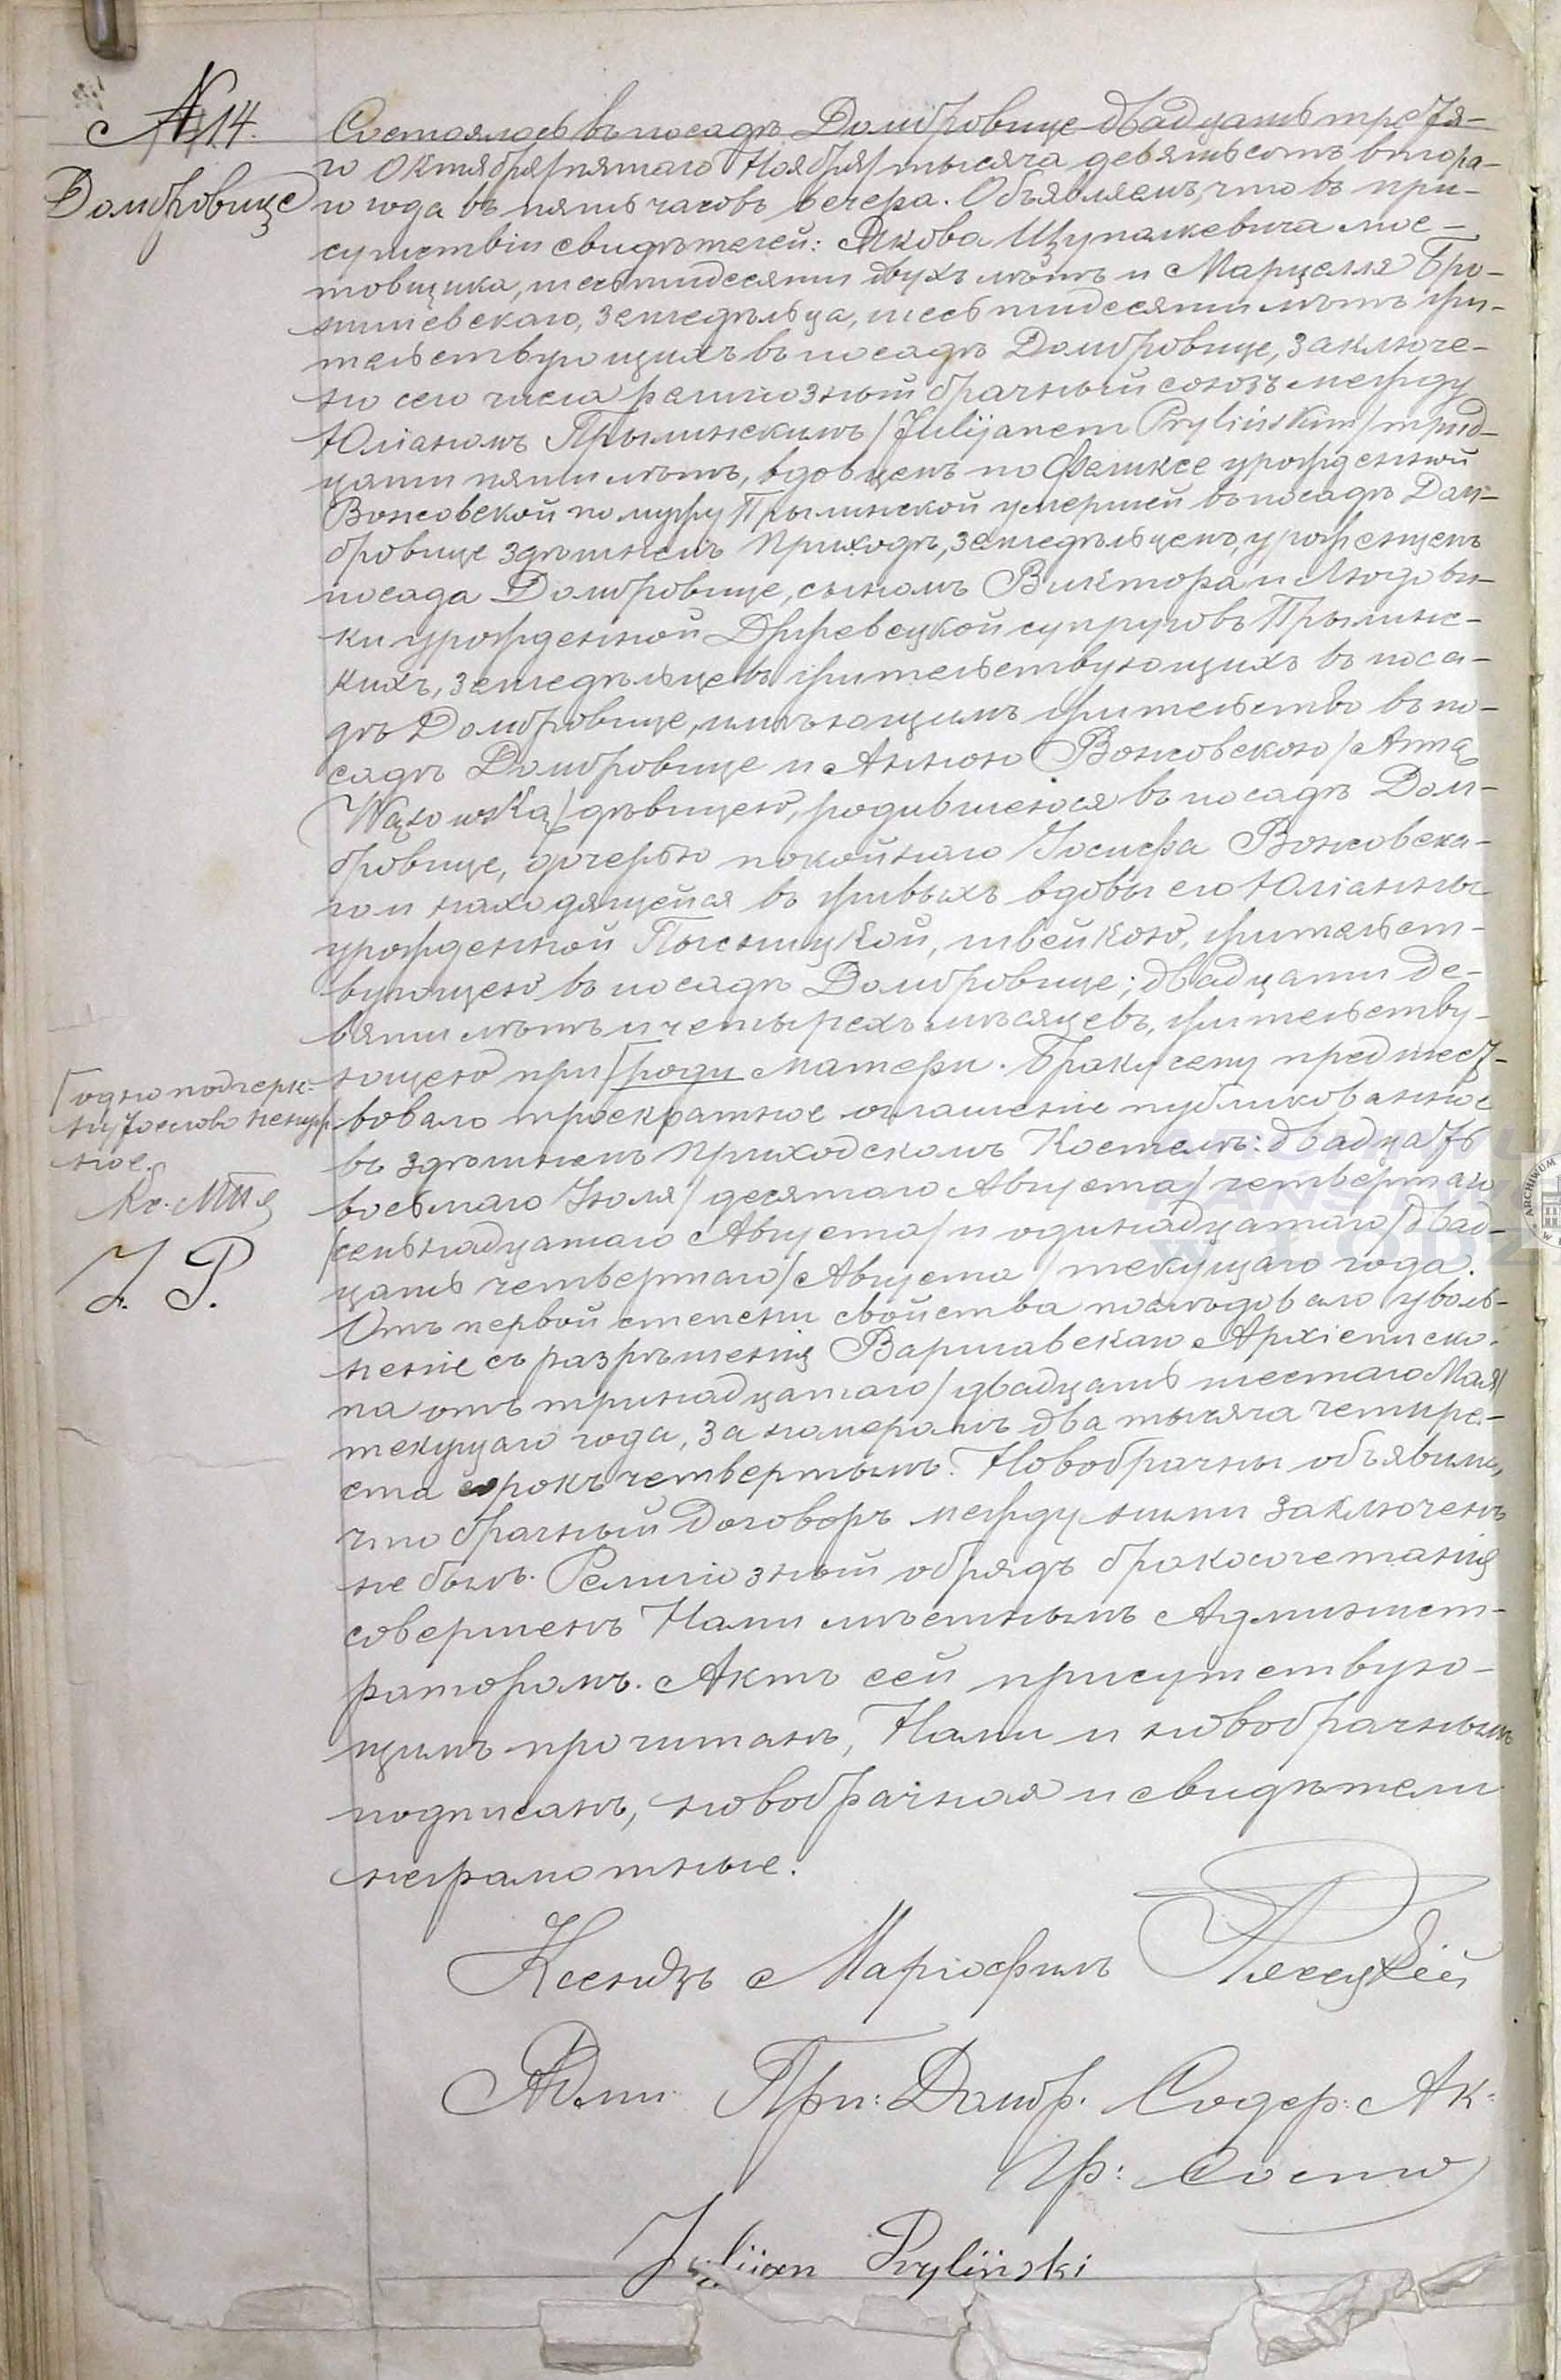 № 14.
Домбровице
Состоялось въ посадѣ Домбровице двадцать третья-
го Октября/пятаго Ноября/тысяча девятьсотъ второ-
го года въ пять часовъ вечера. Объявляемъ, что въ при-
сутствіи свидѣтелей: Якова Щупалкевича мос-
товщика, шестидесяти двухъ лѣтъ и Марцелля Бро-
нишевскаго, земледѣльца, шестидесяти лѣтъ жи-
тельствующихъ въ посадѣ Домбровице, заключе-
но сего числа религіозный брачный союзъ между
Юліаномъ Прылинскимъ /Julijanem Prylińskim/ трид-
цати пяти лѣтъ, вдовцемъ по Феликсе урожденной
Вонсовской по мужу Прылинской умершей въ посадѣ Дом-
бровице здѣшнемъ приходѣ, земледѣльцемъ, уроженцемъ
посада Домбровице, сыномъ Виктора и Людови-
ки урожденной Држевецкой супруговъ Прылинс-
кихъ, земледѣльцевъ жительствующихъ въ поса-
дѣ Домбровице, имѣющимъ жительство въ по-
садѣ Домбровице и Анною Вонсовскою /Anną
Wąsowską/ дѣвицею, родившеюся въ посадѣ Дом-
бровице, дочерью покойнаго Іосифа Вонсовска-
го и находящейся въ живыхъ вдовы его Юліанны
урожденной швейкою, жительст-
вующею въ посадѣ Домбровице; двадцати де-
вяти лѣтъ и четырехъ мѣсяцевъ, жительству-
ющею при /роди матери. Браку сему предшест-
вовало троекратное оглашеніе публикованное
въ здѣшнемъ приходскомъ Костелѣ: двадцать
восьмаго Іюля/десятаго Августа/четвертаго
/семьнадцатаго Августа/и одинадцатаго/двад-
цать четвертаго/Августа/текущаго года.
Отъ первой степени свойства послѣдовало уволь-
неніе съ разрѣшенія Варшавскаго Архіеписко-
па отъ тринадцатаго/двадцать шестаго Мая/
текущаго года, за номеромъ два тысяча четыре-
ста сорокъ четвертымъ. Новобрачны объявили,
что брачный договоръ между ними заключенъ
не былъ. Религіозный обрядъ бракосочетанія
совершенъ Нами мѣстнымъ Админист-
раторомъ. Актъ сей присутствую-
щимъ прочитанъ, Нами и новобрачнымъ
подписанъ, новобрачная и свидѣтели
неграмотные.
/одно подчерк-
нутое слово ненуж-
ное.
Кс. МПя
J. P.
Ксендзъ Маріофилъ
Адми При: Домбр. Содер: Ак:
Гр: Состо
Julijan Pryliński